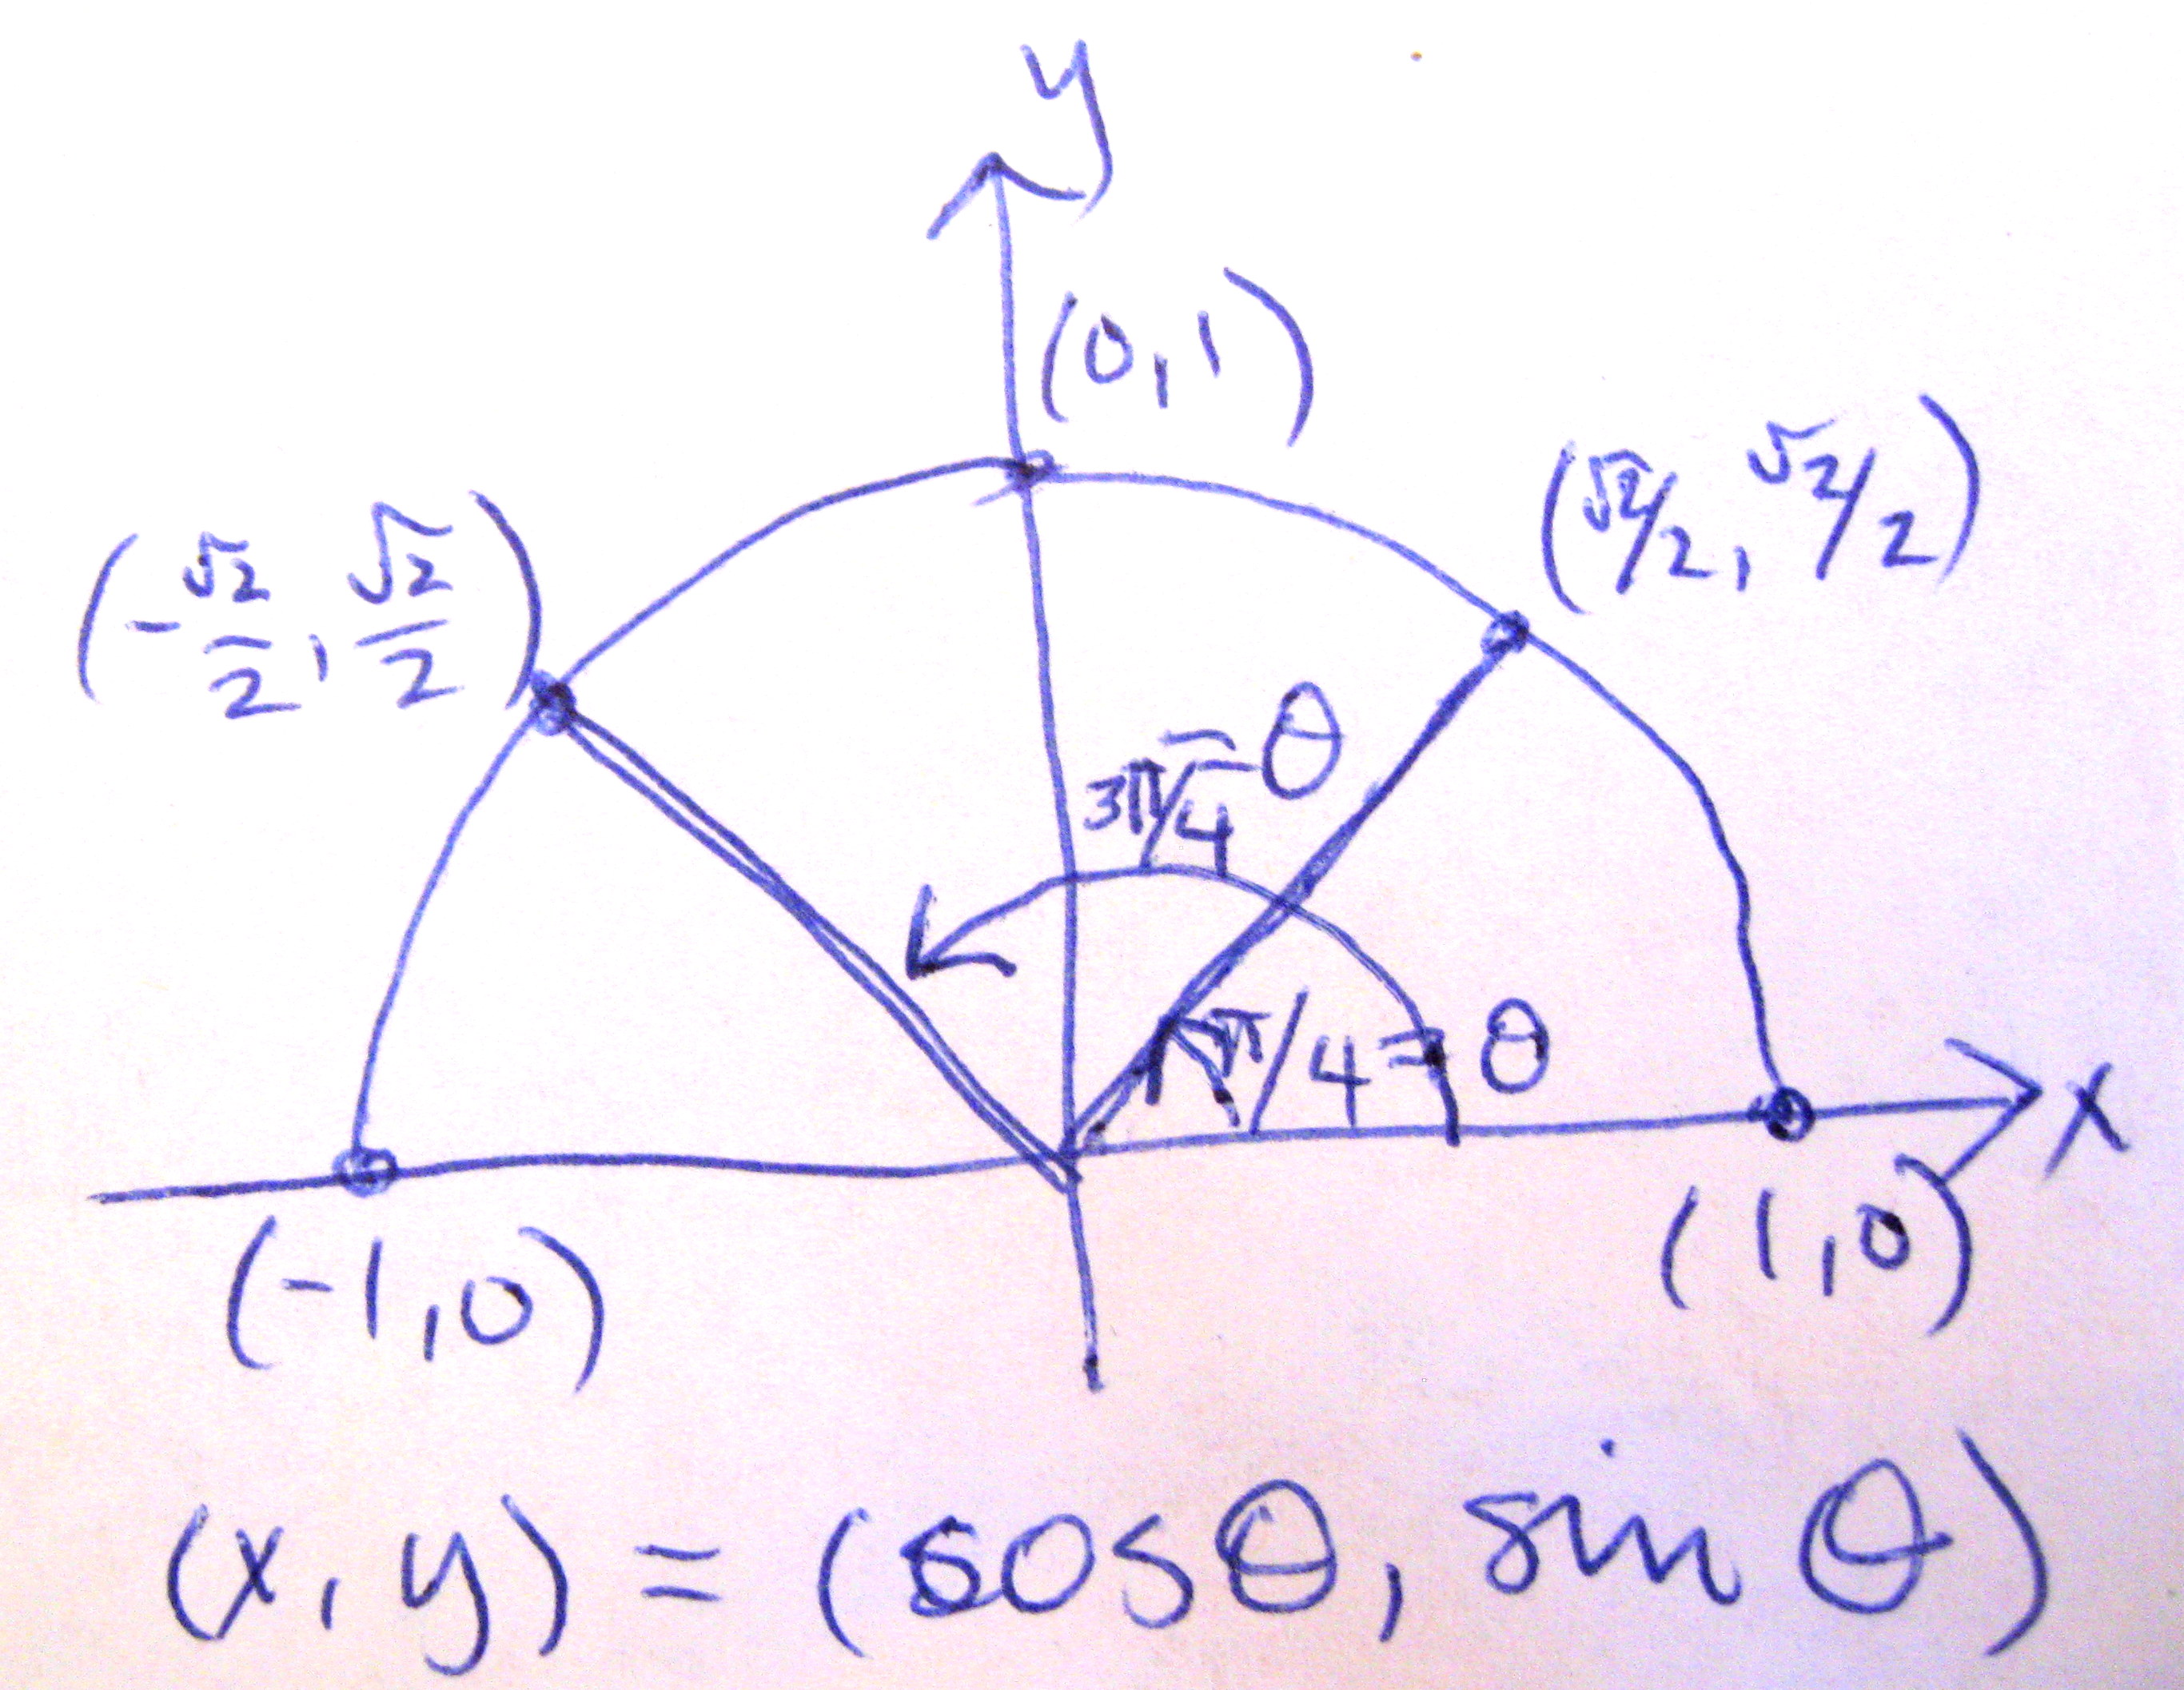 y
(0,1)
(√2/2, √2/2)
(-√2/2, √2/2)
3π/4=θ
π/4=θ
x
(-1,0)
(1,0)
(x,y) = (cosθ, sin θ)